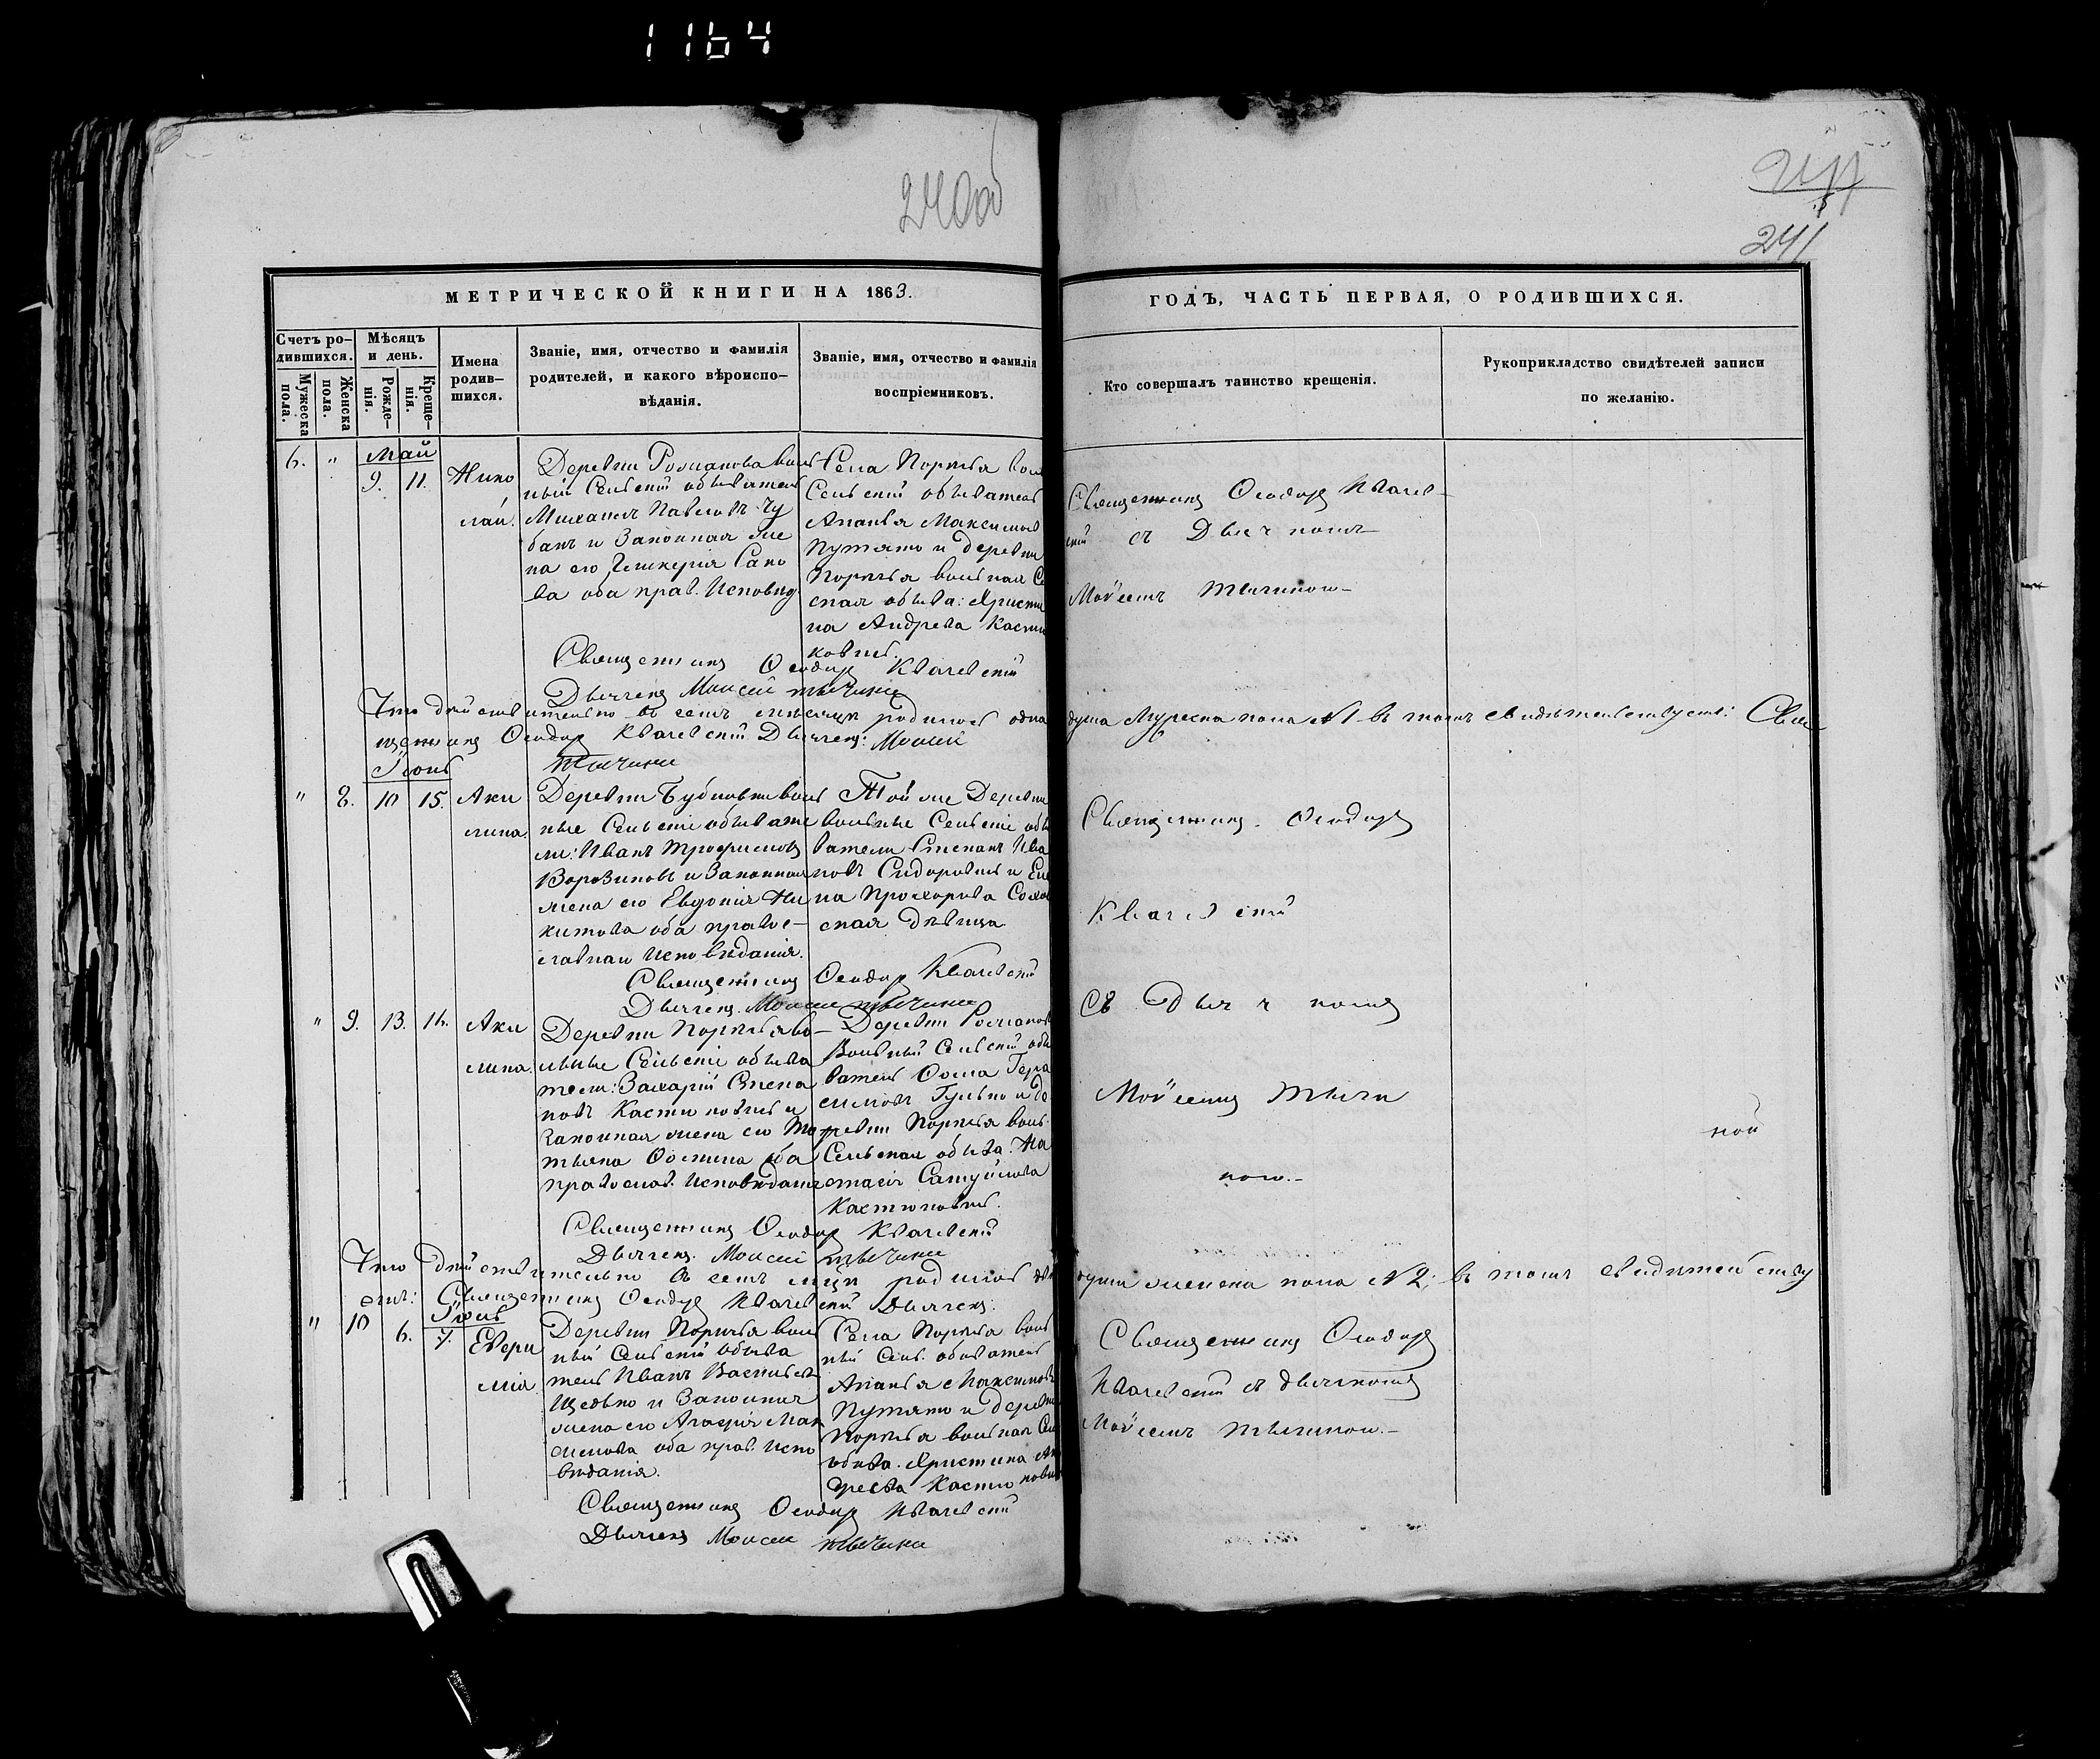 1164
240об
241
МЕТРИЧЕСКОЙ КНИГИ НА 1863.
Счетъ ро-
дившихся.
Мужеска
пола.
Женска
пола.
Мѣсяцъ
и день.
Рожде-
нія.
Креще-
нія.
Имена
родив-
шихся.
Званіе, имя, отчество и фамилія
родителей, и какого вѣроиспо-
вѣданія.
Званіе, имя, отчество и фамилія
воспріемниковъ.
ГОДЪ, ЧАСТЬ ПЕРВАЯ, О РОДИВШИХСЯ.
Кто совершалъ таинство крещенія.
Рукоприкладство свидѣтелей записи
по желанію.
6. " Май
9. 11.
Нико
лай.
Деревни Романова воль
ный Сельскій обыватель
Михаилъ Павловъ Чу
банъ и Законная же
на его Гликерія Сако
ва оба прав. Исповѣд.
Села Порѣчья вол
Сельскій обыватель
Ананья Максимов
Путято и деревни
Порѣчья вольная Се
ская обыва: Христи
на Андреева Касти
ковичъ.
Священникъ Ѳеодоръ Квачев
скій съ Дьячкомъ
Мойсеемъ Тычиною
Священникъ Ѳеодоръ Квачевскій
Дьячекъ Моисей Тычина
Что дѣйствительно въ семъ мѣсяцѣ родилось одна душа Мужеска пола №1 въ томъ свидѣтельствуетъ: Свя
щенникъ Ѳеодоръ Квачевскій Дьячекъ: Моисей
Тычина
Іюнь
" 8. 10 15. Аки
лина.
Деревни Бубновки воль
ные Сельскіе обывате
ли: Иванъ Трофимовъ
и Законная
жена его Евдокія Ни
китова оба право-
славнаго исповѣданія.
Той же Деревни
вольные Сельскіе обы
ватели Степанъ Ива
новъ Сидоровичъ и Еле
на Прохорова
ская дѣвица
Священникъ Ѳеодоръ
Квачевскій
съ Дьячкомъ
Мойсеемъ Тычи
ною.
Священникъ Ѳеодоръ Квачевскій
Дьячекъ. Моисей Тычина
" 9. 13. 16. Аки
лина.
Деревни Порѣчья во-
льные Сельскіе обыва
тели: Захарій Степа
новъ Кастюковичъ и
Законная жена его Та
тьяна Ѳомина оба
православ. Исповѣдан
Деревни Романова
Вольный Сельскій обы
ватель Ѳома Гера
симовъ Гулько и де
ревни Порѣчья воль.
Сельская обыва. На
стасія Самуйлова
Кастюковичъ.
ной
Священникъ Ѳеодоръ Квачевскій
Дьячекъ. Моисей Тычина
Что дѣйствительно въ семъ мцѣ родилось двѣ души женска пола №2; въ томъ свидѣтельству
емъ: Священникъ Ѳеодоръ Квачевскій Дьячекъ:
" 10 Іюль
6. 7. Евфи
мія
Деревни Порѣчья воль
ный Сельскій обыва
тель Иванъ Васильевъ
и Законная
жена его Агафія Мак
симова оба прав. испо
вѣданія.
Села Порѣчья воль
ный Сель. обыватель
Ананья Максимовъ
Путято и деревни
Порѣчья вольная Сел
обыва. Христина Ан
дреева Кастюкович
Священникъ Ѳеодоръ
Квачевскій съ дьячкомъ
Мойсеемъ Тычиною.-
Священникъ Ѳеодоръ Квачевскій
Дьячекъ Моисей Тычина